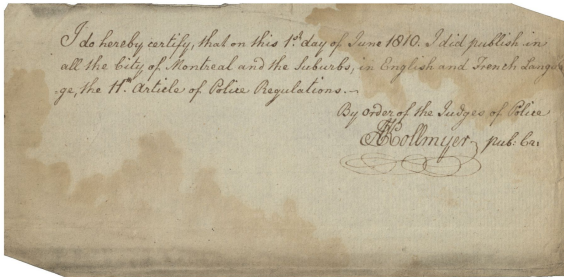 I do hereby certify, that on this 1st day of June 1810. I did publish in
all the City of Montreal and the Suburbs, in English and French Langua
ge, the 11th Article of Police Regulations.
By order of the Judges of Police
Hollmyer pub: Cr.